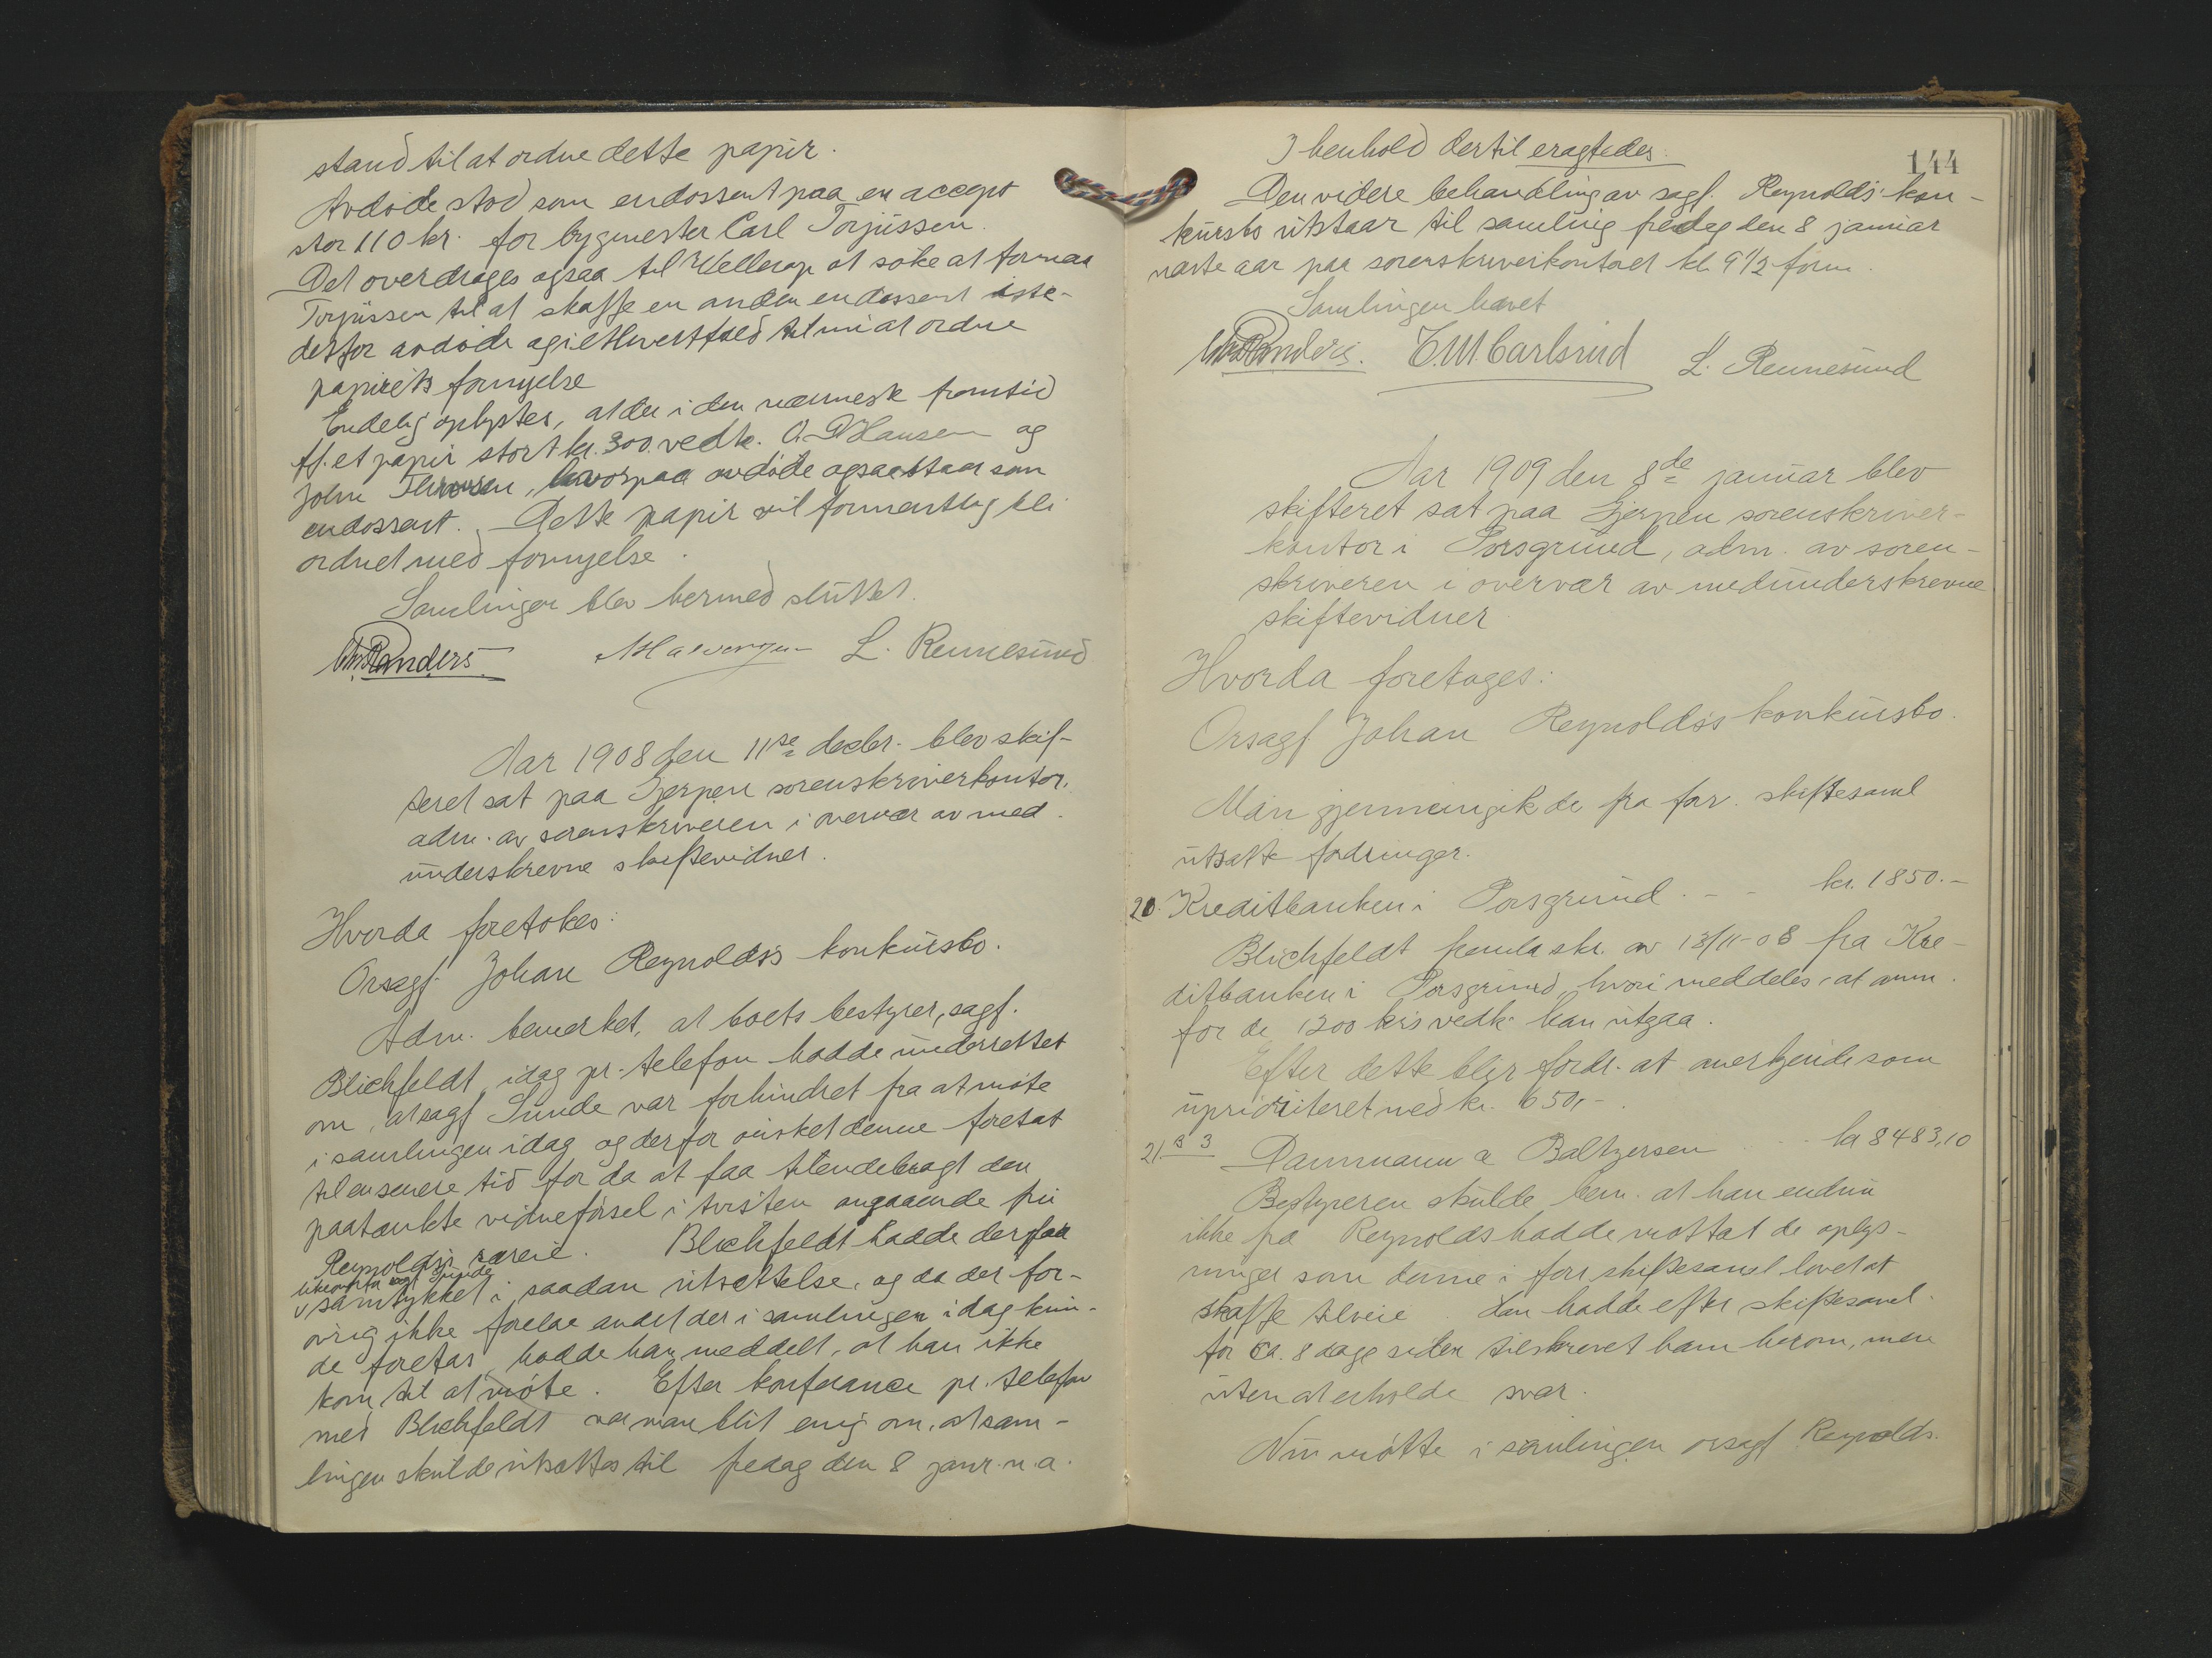 stand til at ordne dette papir.
Avdøde stod som endossent paa en accept
stor 110 kr. for bygmester Carl Torjussen.
Det overdrages ogsaa til Wellerop at søke at formaa
Torjussen til at skaffe en anden endossent iste-
detfor avdøde og i ethvert fald til mi at ordne
papirets fornyelse
Endelig oplystes, at der i den nærmeste fremtid
ff. et papir stort kr. 300. vedk. O. P. Hansen og
John, hvorpaa avdøde ogsaa staar som
endossent. Dette papir vil formentlig bli
ordnet med fornyelse.
Samlingen blev hermed sluttet.
Chr. Randers L. Rennesund
Aar 1908 den 11te decbr. blev skif-
teret sat paa Gjerpen sorenskriverkontor,
adm. av sorenskriveren i overvær av med-
underskrevne skiftevidner.
Hvorda foretokes:
Orsagf. Johan Reynolds's konkursbo.
Adm. bemerket, at boets bestyrer, sagf.
Blichfeldt idag pr. telefon hadde underrettet
om, at sagf Sunde var forhindret fra at møte
i samlingen idag og derfor ønsket denne foretat
til en senere tid for da at faa tilendebragt den
paatænkte vidneførsel i tvisten angaaende fru
Reynolds's særeie. Blichfeldt hadde derfor
likeoverfor sagf Sunde
samtykket i saadan utsættelse, og da der for-
øvrig ikke forelaa andet der i samlingen idag kun-
de foretas, hadde han meddelt, at han ikke
kom til at møte. Efter konferance pr. telefon
med Blichfeldt var man blit enig om, at sam-
lingen skulde utsættes til fredag den 8 janr. n.a.
144
I henhold dertil eragtedes:
Den videre behandling av sagf. Reynolds' kon-
kursbo utstaar til samling fredag den 8 januar
næste aar paa sorenskriverkontoret kl. 9 1/2 form.
Samlingen hævet
Chr. Randers. E. M. Carlsrud L. Rennesund
Aar 1909 den 8de januar blev
skifteret sat paa Gjerpen sorenskriver-
kontor i Porsgrund, adm. av soren-
skriveren i overvær av medunderskrevne
skiftevidner
Hvorda foretoges:
Orsagf Johan Reynolds's konkursbo.
Man gjennemgik de fra forr. skiftesaml
utsatte fordringer.
20. Kreditbanken i Porsgrund. - - kr. 1850.-
Blichfeldt fremla skr. av 13/11-08 fra Kre-
ditbanken i Porsgrund, hvori meddeles, at anm.
for de 1200 kr's vedk. kan utgaa.
Efter dette blir fordr. at anerkjende som
uprioriteret med kr. 650,-.
21. B 3 Danmann & Baltzersen kr 8483,10
Bestyreren skulde bem. at han endnu
ikke fra Reynolds hadde mottat de oplys-
ninger som denne i forr skiftesaml lovet at
skaffe tilveie. Han hadde efter skiftesaml.
for ca. 8 dage siden tilskrevet ham herom, men
uten at erholde svar.
Nu møtte i samlingen orsagf Reynolds.